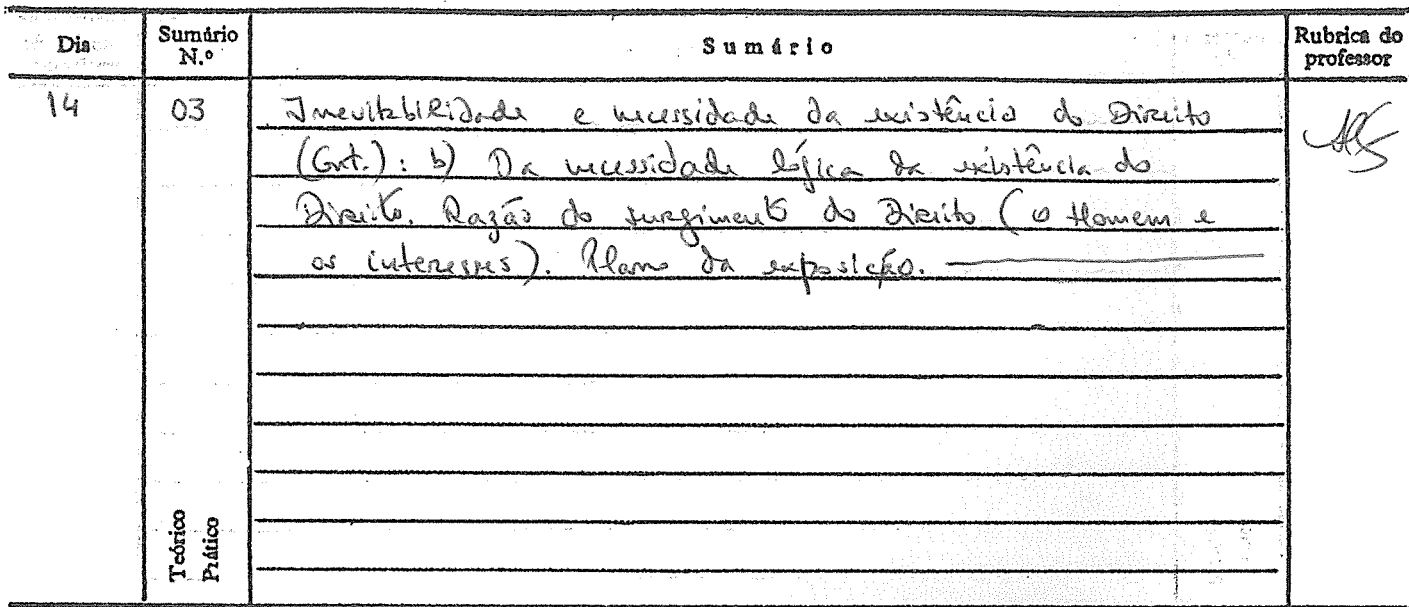 Dia Sumário N.º Sumário Rubrica do professor
14 03 Inevitabilidade e necessidade da existência do Direito
(Cont.): b) Da necessidade lógica da existência do
Direito. Razão do surgimento do Direito (o Homem e
os interesses). Plano da exposição.
Teórico
Prático